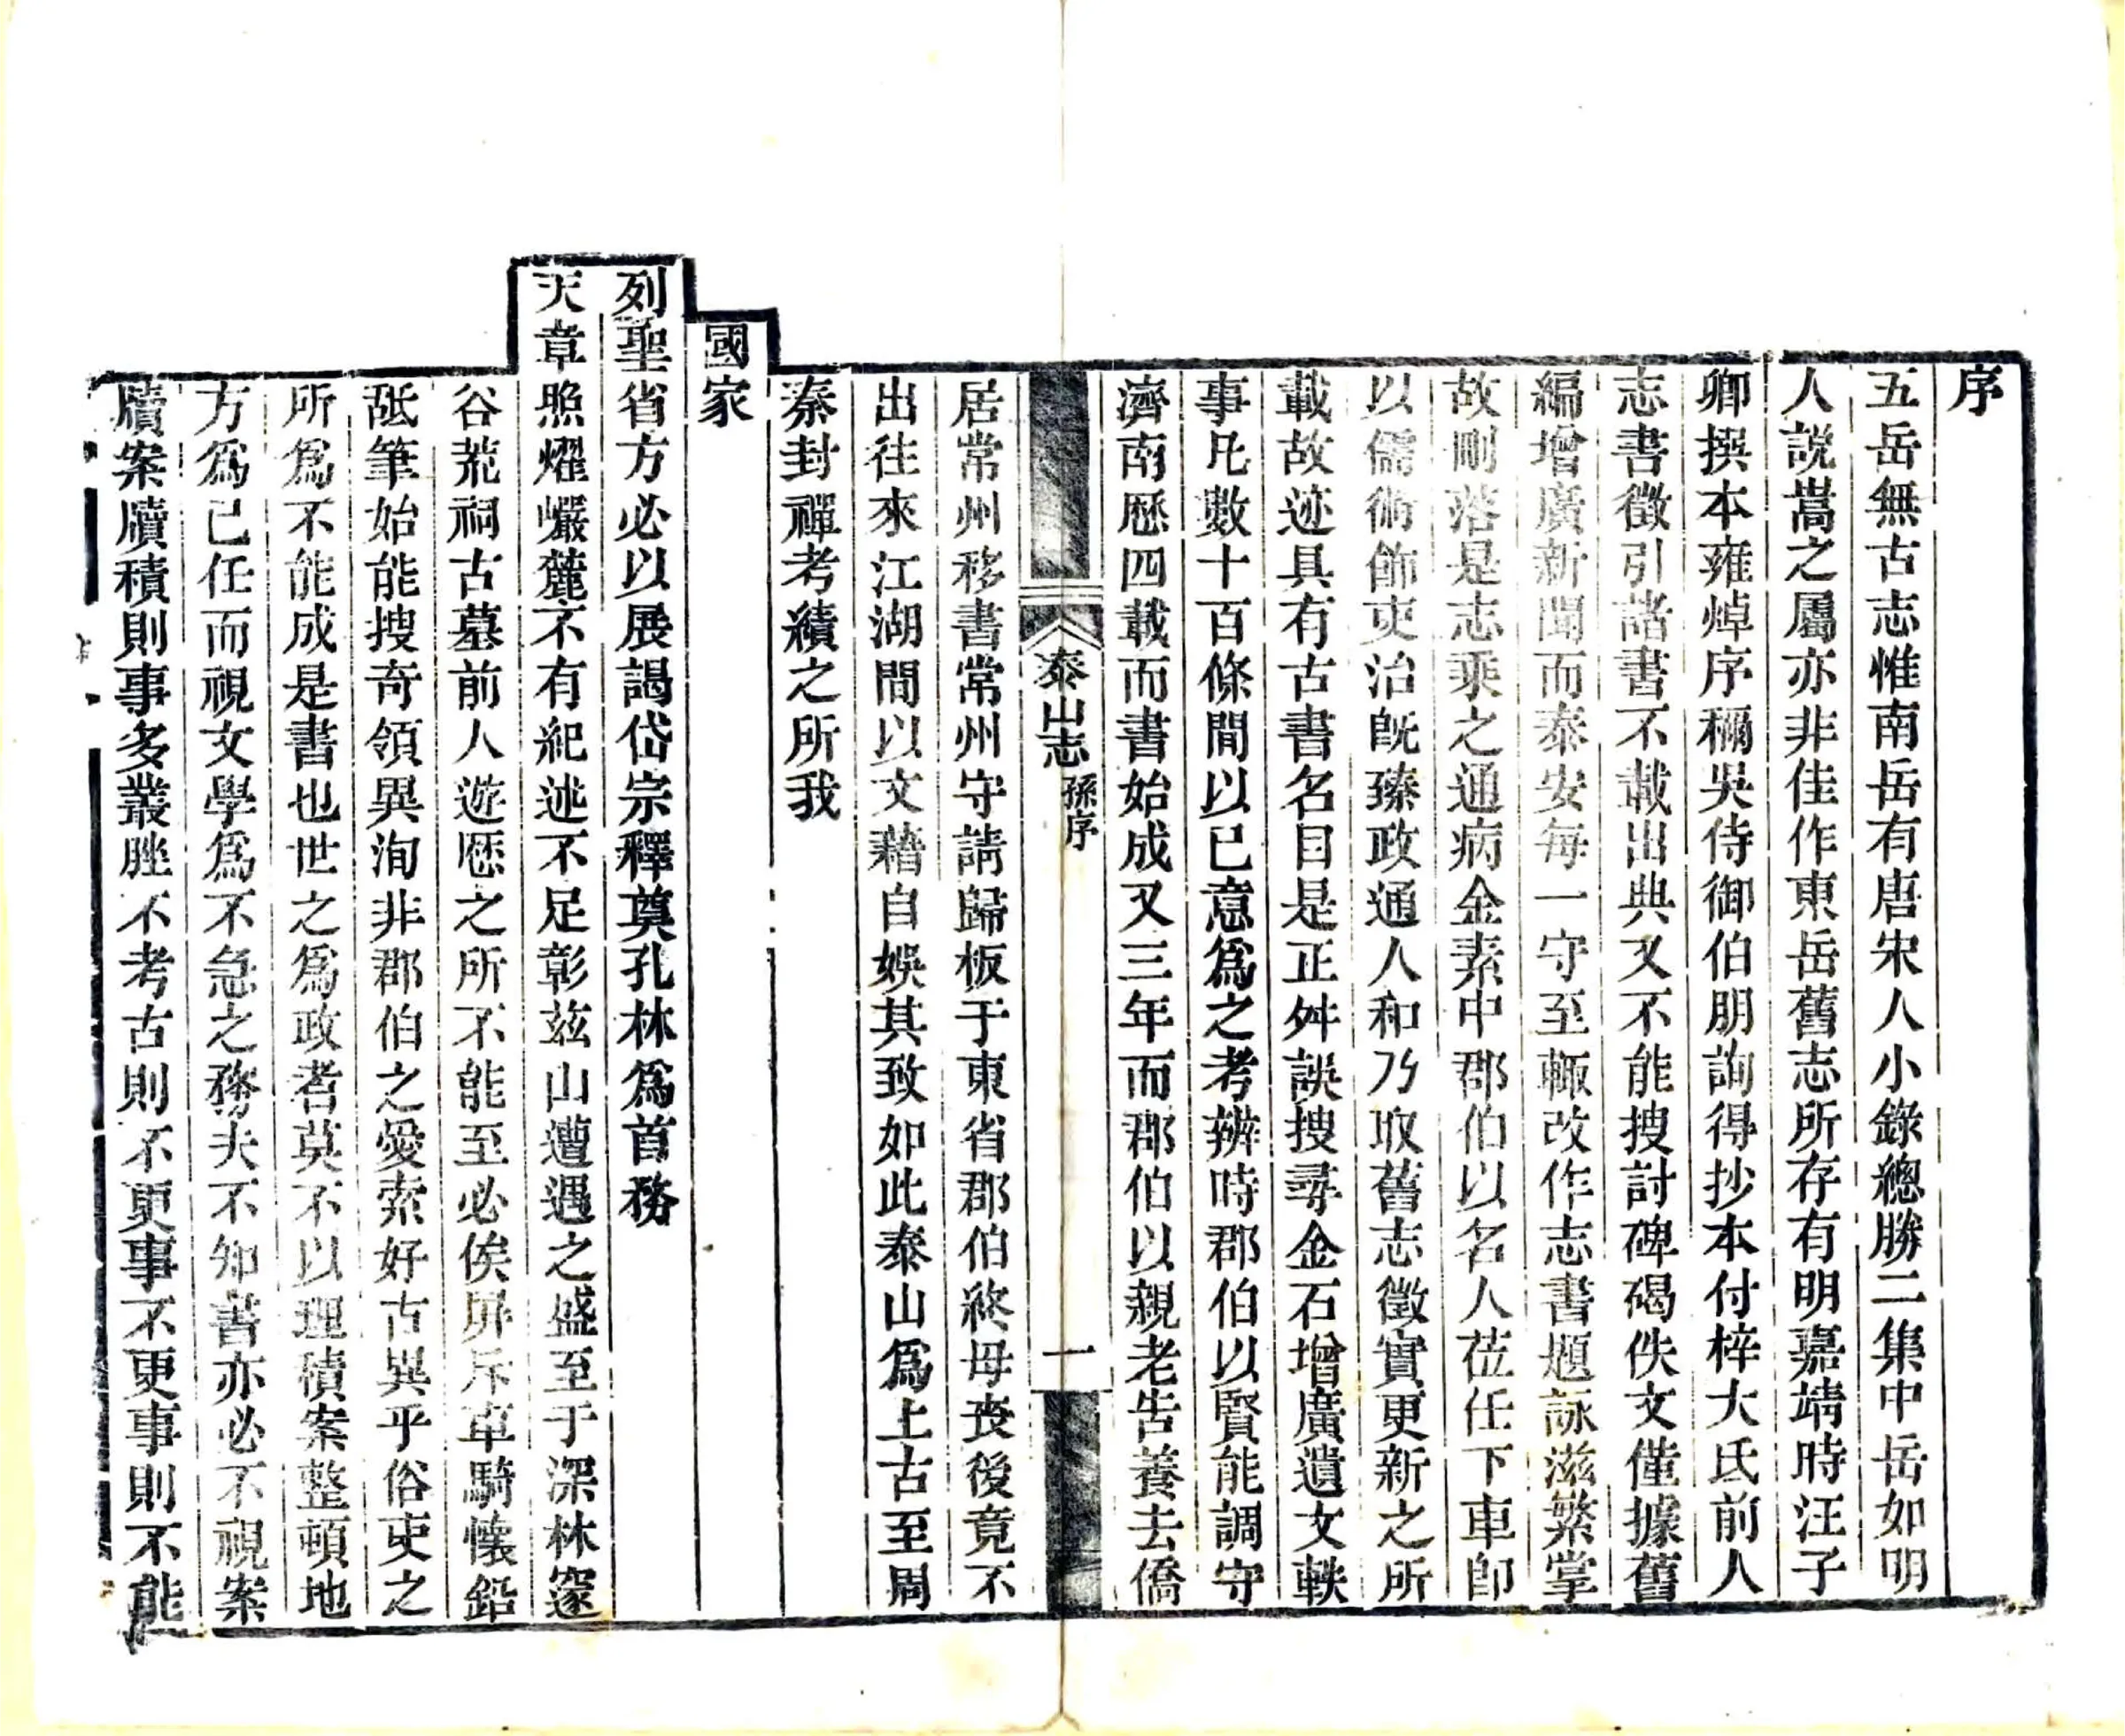 序
五岳無古志惟南岳有唐宋人小錄總勝二集中岳如明
人說嵩之屬亦非佳作東岳舊志所存有明嘉靖時汪子
卿撰本雍焯序稱吳侍御伯朋詢得抄本付梓大氐前人
志書徵引諸書不載出典又不能搜討碑碣佚文僅據舊
編增廣新聞而泰安每一守至輙改作志書題詠滋繁掌
故剛落是志乘之通病金素中郡伯以名人莅任下車卽
以儒術飾吏治旣臻政通人和乃取舊志徵實更新之所
載故迹具有古書名目是正舛誤搜尋金石增廣遺文軼
事凡數十百條間以已意爲之考辨時郡伯以賢能調守
濟南歷四載而書始成又三年而郡伯以親老告養去僑
泰山志 孫序 一
居常州移書常州守請歸板于東省郡伯終母丧後竟不
出往來江湖間以文藉自娛其致如此泰山爲上古至周
秦封禪考績之所我
國家
列聖省方必以展謁岱宗釋奠孔林爲首務
天章照燿巗麓不有紀述不足彰兹山遭遇之盛至于深林窔
谷荒祠古墓前人遊歷之所不能至必俟屏斥車騎懷鉛
舐筆始能搜奇領異洵非郡伯之愛索好古異乎俗吏之
所爲不能成是書也世之爲政者莫不以理積案整頓地
方爲已任而視文學爲不急之務夫不知書亦必不視案
牘案牘積則事多叢脞不考古則不更事不更事則不能